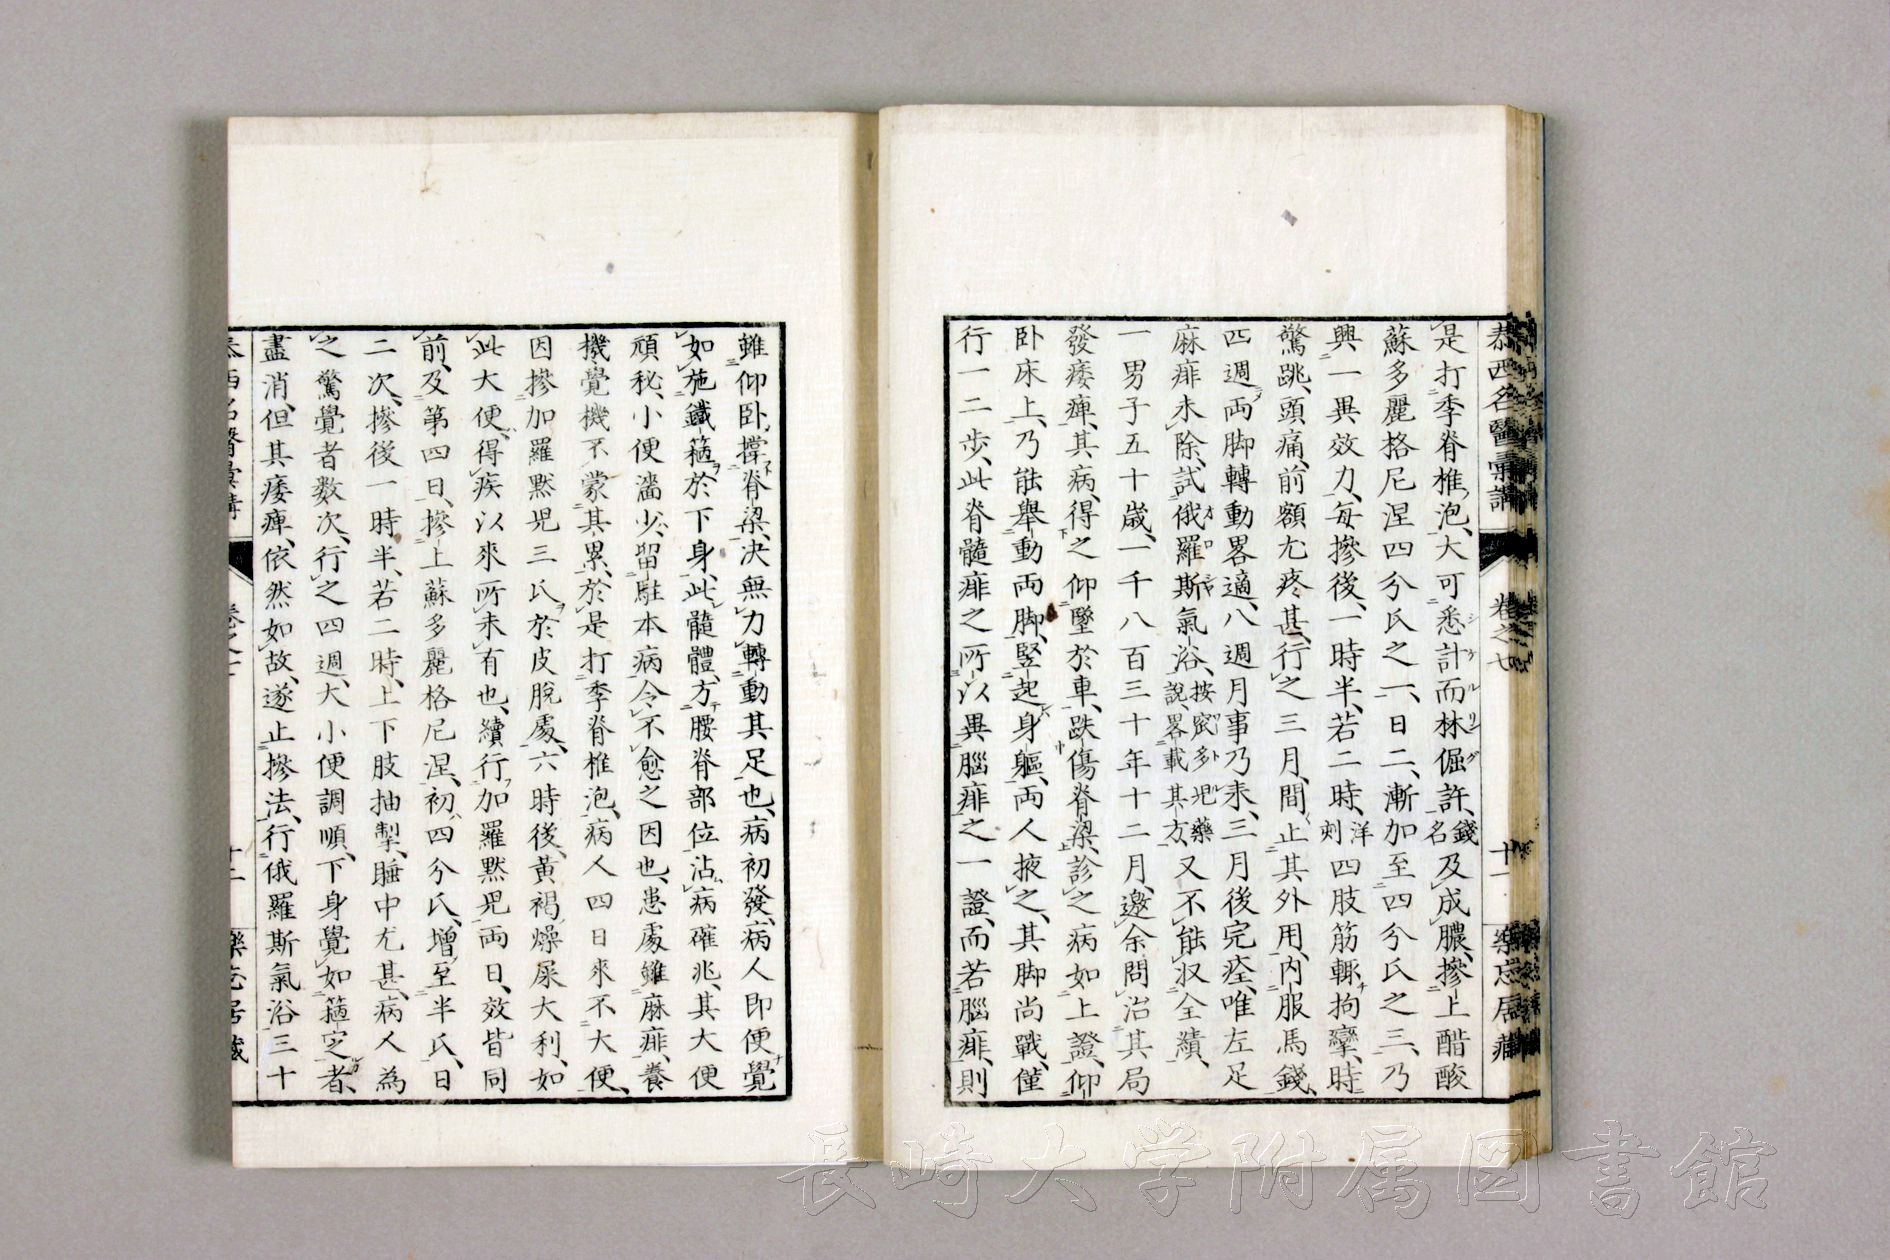 泰西名醫彙講 卷之七 十一 樂志居藏
是打季脊椎泡、大可悉計而林倔許、錢名及成膿、摻上醋酸
蘇多麗格尼涅四分氏之一、日二、漸加至四分氏之三、乃
興一異效力、每摻後、一時半、若二時、洋刻四肢筋輙拘攣、時
驚跳、頭痛、前額尤疼甚、行之三月、間止其外用、內服馬錢、
四週、両脚轉動畧適、八週月事乃来、三月後完痊、唯左足
麻痱未除、試俄羅斯氣浴、按宻多児藥說、畧載其方、又不能収全績、
一男子五十歲、一千八百三十年十二月、邀余問治其局
發痿痺、其病得之仰墜於車、跌傷脊梁、診之病如上證、仰
卧床上、乃能舉動両脚、竪起身軀、両人掖之、其脚尚戰、僅
行一二步、此脊髓痱之所以異腦痱之一證、而若腦痱、則
雖仰卧、撐脊梁、决無力轉動其足也、病初發、病人即便覺
如施鐵箍於下身、此髓體、方腰脊部位沾病確兆、其大便
頑秘、小便濇少、留駐本病、令不愈之因也、患處雖麻痱、養
機覺機不蒙其累、於是打季脊椎泡、病人四日來不大便、
因摻加羅黙児三氏於皮脫處、六時後、黃褐燥屎大利、如
此大便、得疾以來所未有也、續行加羅黙児両日、效皆同
前、及第四日、摻上蘇多麗格尼涅、初四分氏、增至半氏、日
二次、摻後一時半、若二時、上下肢抽掣、睡中尤甚、病人為
之驚覺者数次、行之四週、大小便調順、下身覺如箍定者、
盡消、但其痿痺、依然如故、遂止摻法、行俄羅斯氣浴三十
泰西名醫彙講 卷之七 十二 樂志居藏
長崎大学附属図書館